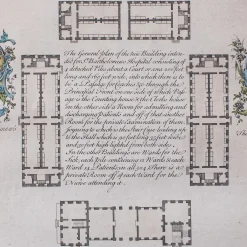 The General plan of the new Building inten-
ded for St Bartholomews Hospital consisting of
4 detached Piles about a Court is 200 feet
long and 160 feet wide, into which there is to
be a Passage for Coaches &c through the
Principal Front on one side of which Pass-
age is the Counting house & the Clerks house
on the other side a Room for admitting and
discharging Patients and off of that another
Room for the private Examination of them:
joyning to which is the Stair Case leading up
to the Hall which is 90 feet long 35 feet wide
and 30 feet high lighted from both sides
In the other Buildings are Wards for the
Sick, each Pile containing 12 Wards & each
Ward 14 Patients in all 504 There is a
private Room off each Ward for the
Nurse attending it.